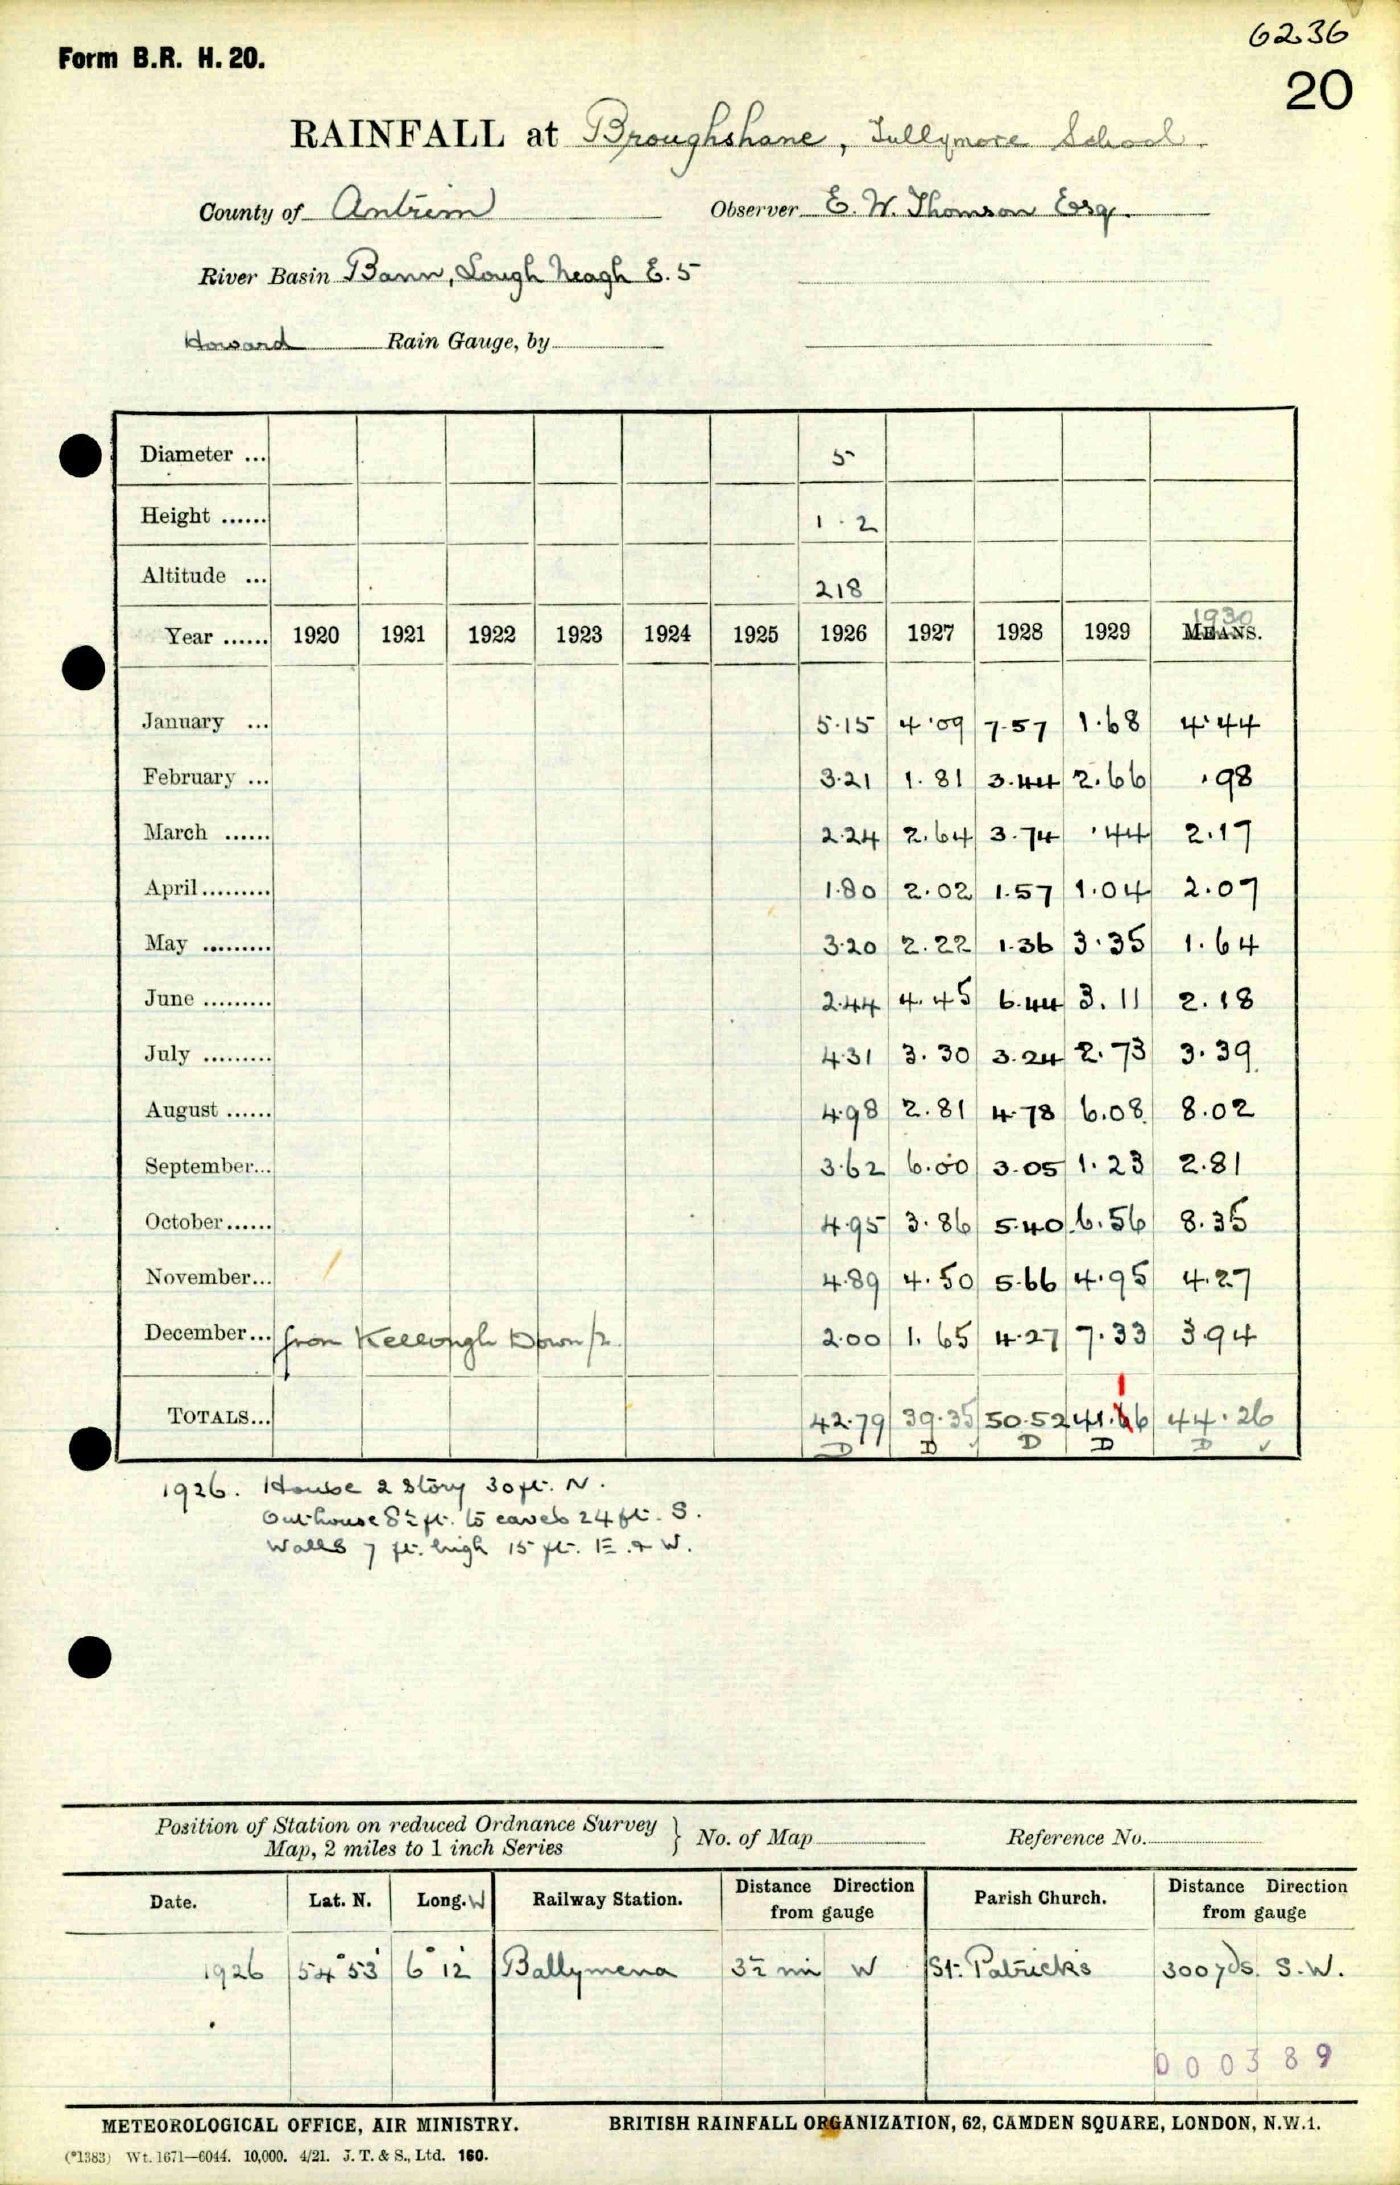 6236
Form B.R. H. 20.
20
RAINFALL at Broughshane, Tullymore School.
County of Antrim Observer E. W. Thomson Esq.
River Basin Bann, Lough Neagh E. 5
Howard Rain Gauge, by
Diameter ... 5
Height ...... 1 . 2
Altitude ... 218
1930
Year ...... 1920 1921 1922 1923 1924 1925 1926 1927 1928 1929 MEANS.
January ... 5.15 4.09 7.57 1.68 4.44
February ... 3.21 1.81 3.44 2.66 .98
March ...... 2.24 2.64 3.74 .44 2.17
April ......... 1.80 2.02 1.57 1.04 2.07
May ......... 3.20 2.22 1.36 3.35 1.64
June ......... 2.44 4.45 6.44 3.11 2.18
July ......... 4.31 3.30 3.24 2.73 3.39
August ...... 4.98 2.81 4.78 6.08 8.02
September... 3.62 6.00 3.05 1.23 2.81
October ...... 4.95 3.86 5.40 6.56 8.35
November... 4.89 4.50 5.66 4.95 4.27
December... from Down/2 2.00 1.65 4.27 7.33 3.94
1
TOTALS... 42.79 39.35 50.52 41.66 44.26
D D ✓ D D D ✓
1926. House 2 story 30 ft. N.
Outhouse 8½ ft. to eaves 24 ft. S.
Walls 7 ft. high 15 ft. E. & W.
Position of Station on reduced Ordnance Survey
Map, 2 miles to 1 inch Series } No. of Map Reference No.
Date. Lat. N. Long. W Railway Station. Distance Direction from gauge Parish Church. Distance Direction from gauge
1926 54° 53' 6° 12' Ballymena 3½ mi W St. Patricks 300 yds. S.W.
000389
METEOROLOGICAL OFFICE, AIR MINISTRY. BRITISH RAINFALL ORGANIZATION, 62, CAMDEN SQUARE, LONDON, N.W.1.
(*1383) Wt. 1671—6044. 10,000. 4/21. J. T. & S., Ltd. 160.